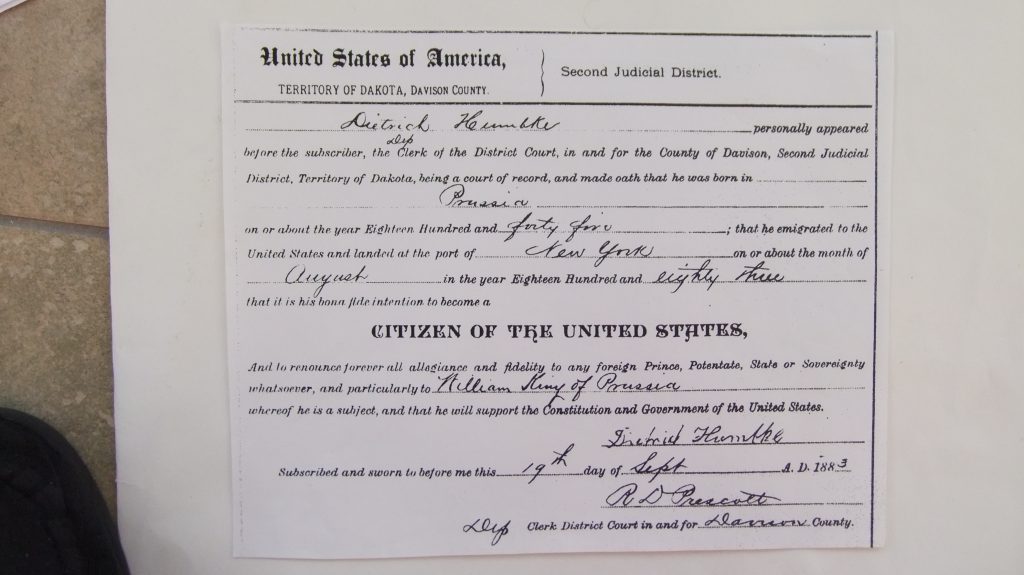 United States of America,
TERRITORY OF DAKOTA, DAVISON COUNTY.
Second Judicial District.
Dietrich Humbke personally appeared
Dep
before the subscriber, the Clerk of the District Court, in and for the County of Davison, Second Judicial
District, Territory of Dakota, being a court of record, and made oath that he was born in
Prussia
on or about the year Eighteen Hundred and forty five ; that he emigrated to the
United States and landed at the port of New York on or about the month of
August in the year Eighteen Hundred and eighty three
that it is his bona fide intention to become a
CITIZEN OF THE UNITED STATES,
And to renounce forever all allegiance and fidelity to any foreign Prince, Potentate, State or Sovereignty
whatsoever, and particularly to William King of Prussia
whereof he is a subject, and that he will support the Constitution and Government of the United States.
Dietrich Humbke
Subscribed and sworn to before me this 19th day of Sept A. D. 1883
R D Prescott
Dep Clerk District Court in and for Davison County.